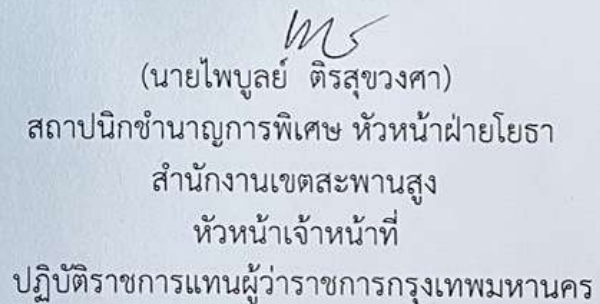 (นายไพบูลย์ ติรสุขวงศา)
สถาปนิกชำนาญการพิเศษ หัวหน้าฝ่ายโยธา
สำนักงานเขตสะพานสูง
หัวหน้าเจ้าหน้าที่
ปฏิบัติราชการแทนผู้ว่าราชการกรุงเทพมหานคร